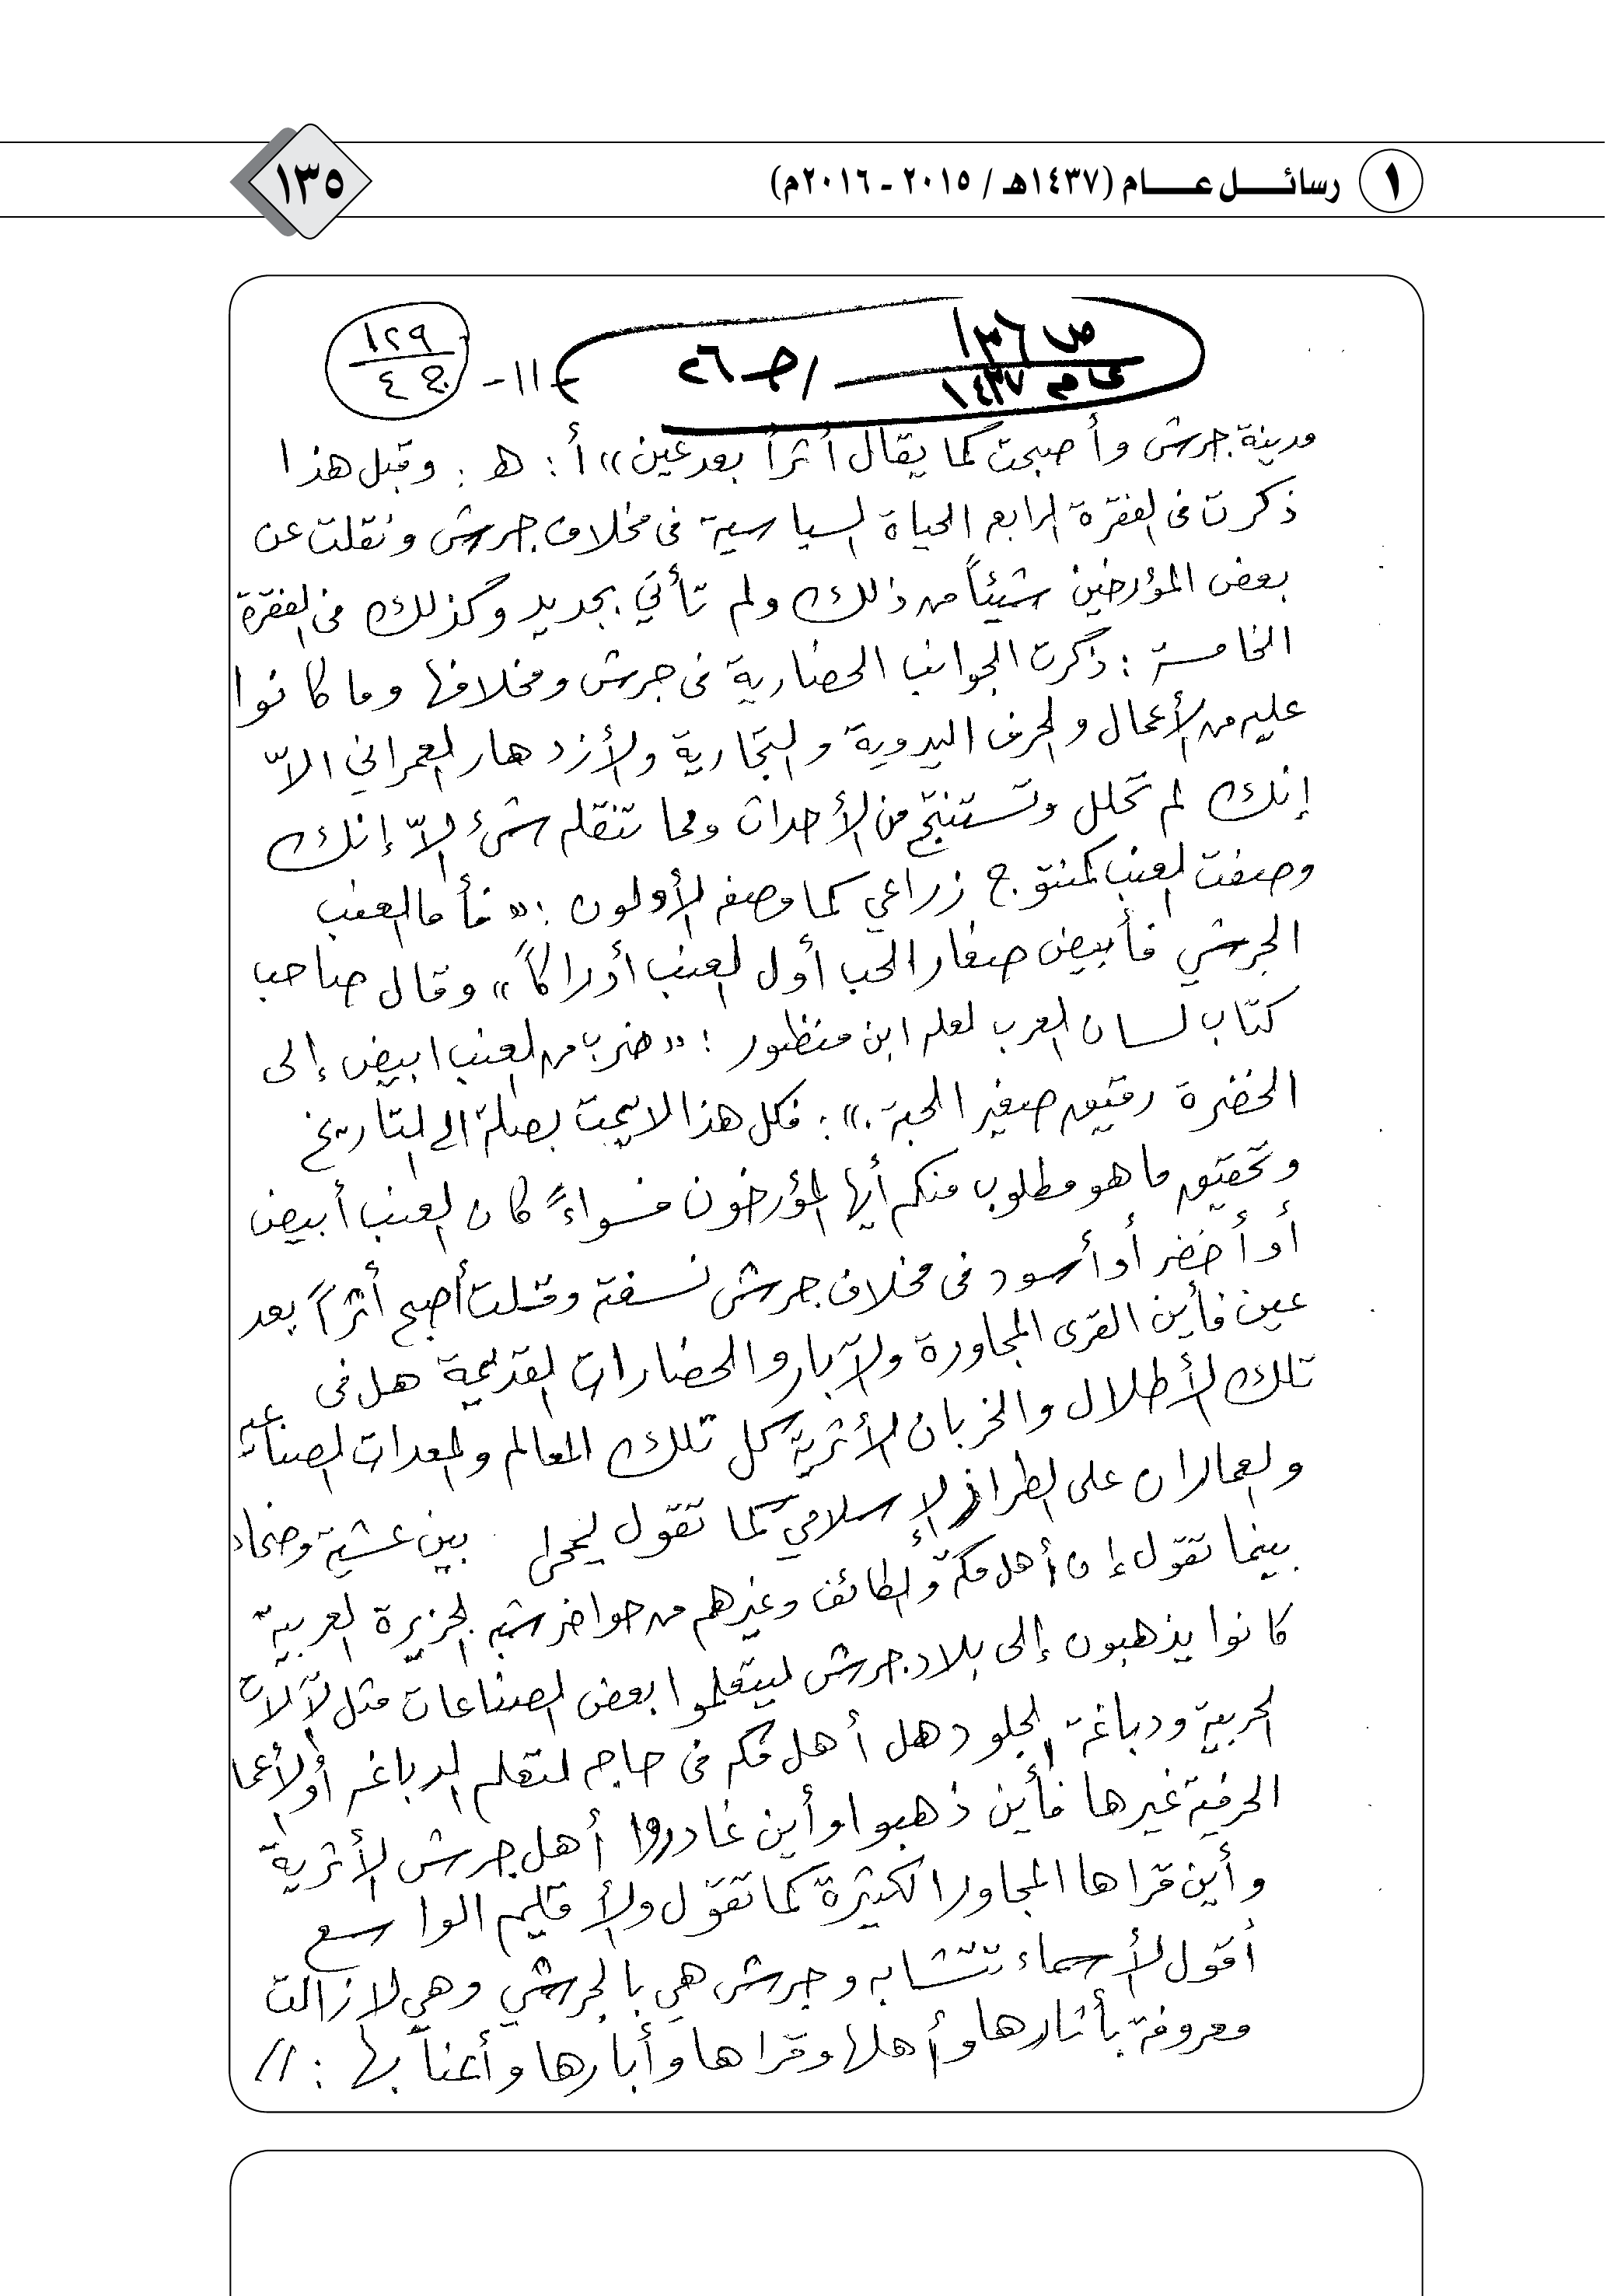 ١ رسائل عام (١٤٣٧هـ / ٢٠١٥ - ٢٠١٦م)
١٣٥
ص ١٣٦
عام ١٤٣٧ / جـ ٢٦
-١١-
١٢٩
ج ٤
مدينة جرش وأصبحت كما يقال أثراً بعد عين» أ: هـ: وقبل هذا
ذكرت في الفقرة الرابع الحياة السياسية في مخلاف جرش ونقلت عن
بعض المؤرخين شيئاً من ذلك ولم تأتي بجديد وكذلك في الفقرة
الخامسة: ذكرت الجوانب الحضارية في جرش ومخلافها وما كانوا
عليه من الأعمال والحرف اليدوية والتجارية والأزدهار العمراني الاّ
إنك لم تحلل وتستنتج من الأحداث ومما تنقله شئ الاّ إنك
وصفت العنب كمنتوج زراعي كما وصفه الأولون: «فأما العنب
الجرشي فأبيض صغار الحب أول العنب أدراكاً» وقال صاحب
كتاب لسان العرب لعله ابن منظور: «ضرب من العنب ابيض إلى
الخضرة رقيق صغير الحبة.»: فكل هذا لا يمت بصلة الى التاريخ
وتحقيق ما هو مطلوب منكم أيها المؤرخون فسواءً كان العنب أبيض
أو أخضر أو أسود في مخلاف جرش نسفته وقلت أصبح أثراً بعد
عين فأين القرى المجاورة والآبار والحضارات القديمة هل في
تلك الأطلال والخربان الأثرية كل تلك المعالم والمعدات الصناعية
والعماران على الطراز الإسلامي كما تقول ليمحى بين عشية وضحاء
بينما تقول إن أهل مكة والطائف وغيرهم من حواضر شبه الجزيرة العربية
كانوا يذهبون إلى بلاد جرش ليتعلموا بعض الصناعات مثل الآلات
الحربية ودباغة الجلود هل أهل مكه في حاجه لتعلم الدباغه أو الأعما
الحرفية غيرها فأين ذهبوا وأين غادروا أهل جرش الأثرية
وأين قراها المجاورا الكثيرة كما تقول والأقليم الواسع
أقول الأسماء تتشابه وجرش هي بالجرشي وهي لا زالت
معروفة بأثارها وأهلها وقراها وأبارها وأعنابها: //